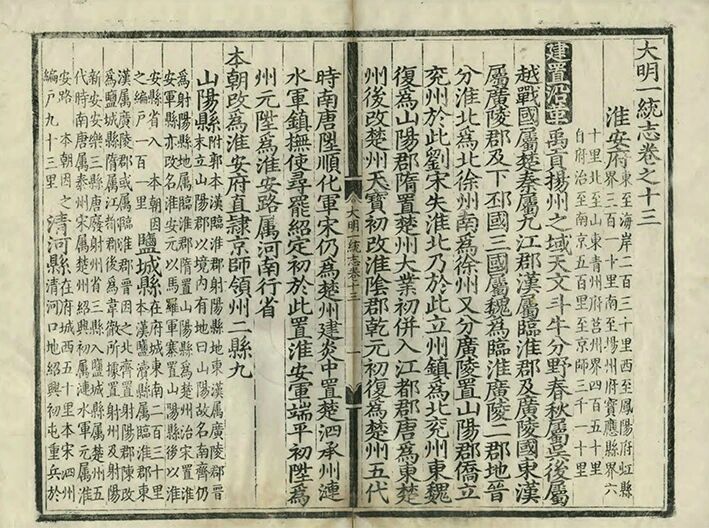 大明一統志卷之十三
淮安府東至海岸二百三十里西至鳳陽府虹縣
十里北至山東青州府莒州界四百五十里
界三百一十里南至揚州府寶應縣界六
自府治至南京五百里至京師三千一十里
建置沿革禹貢揚州之域天文斗牛分野春秋屬吳後屬
越戰國屬楚秦屬九江郡漢屬臨淮郡及廣陵國東漢
屬廣陵郡及下邳國三國屬魏為臨淮廣陵二郡地晉
分淮北為北徐州南為徐州又分廣陵置山陽郡僑立
兖州於此劉宋失淮北乃於此立州鎮為北兖州東魏
復為山陽郡隋置楚州大業初併入江都郡唐為東楚
州後改楚州天寶初改淮陰郡乾元初復為楚州五代
大明一統志卷十三
一
時南唐陞順化軍宋仍為楚州建炎中置楚泗承州漣
水軍鎮撫使尋罷紹定初於此置淮安軍端平初陞為
州元陞為淮安路屬河南行省
本朝改為淮安府直隷京師領州二縣九
山陽縣附郭本漢臨淮郡射陽縣地東漢屬廣陵郡晉
末立山陽郡以境內有地曰山陽故名南齊仍
為射陽縣地屬臨淮郡隋置山陽縣為楚州治宋置淮
安軍縣亦改名淮安元以馬羅軍寨置山陽縣後以淮
安縣省入本朝因
之編戶一百一里鹽城縣在府城東南二百三十里
本漢鹽瀆縣屬臨淮郡東
漢屬廣陵郡晉因之北齊置射陽郡陳改
為鹽城縣隋屬江都郡後為韋徹所據置射州及射陽
新安安樂三縣唐廢射州省三縣入鹽城縣屬楚州五
代時南唐屬泰州宋屬楚州紹興初屬漣水軍元屬淮
安路本朝因之
編戶九十三里清河縣在府城西五十里本宋泗州
清河口地紹興初屯重兵於